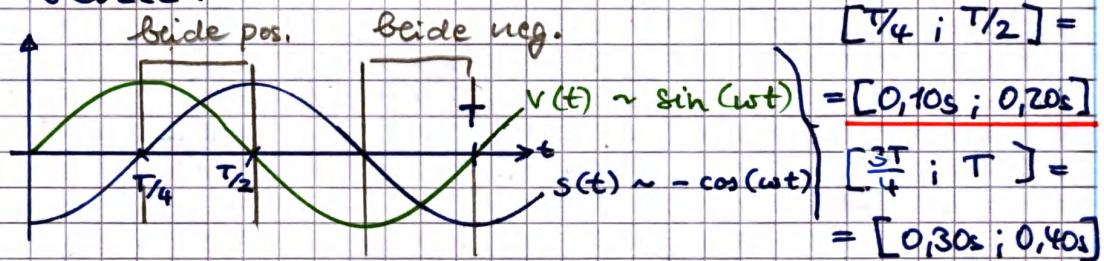 beide pos. beide neg.
v(t) ~ sin(ωt)
T
t
T/4 T/2
s(t) ~ -cos(ωt)
[T/4 ; T/2] =
= [0,10s ; 0,20s]
[3T/4 ; T] =
= [0,30s ; 0,40s]